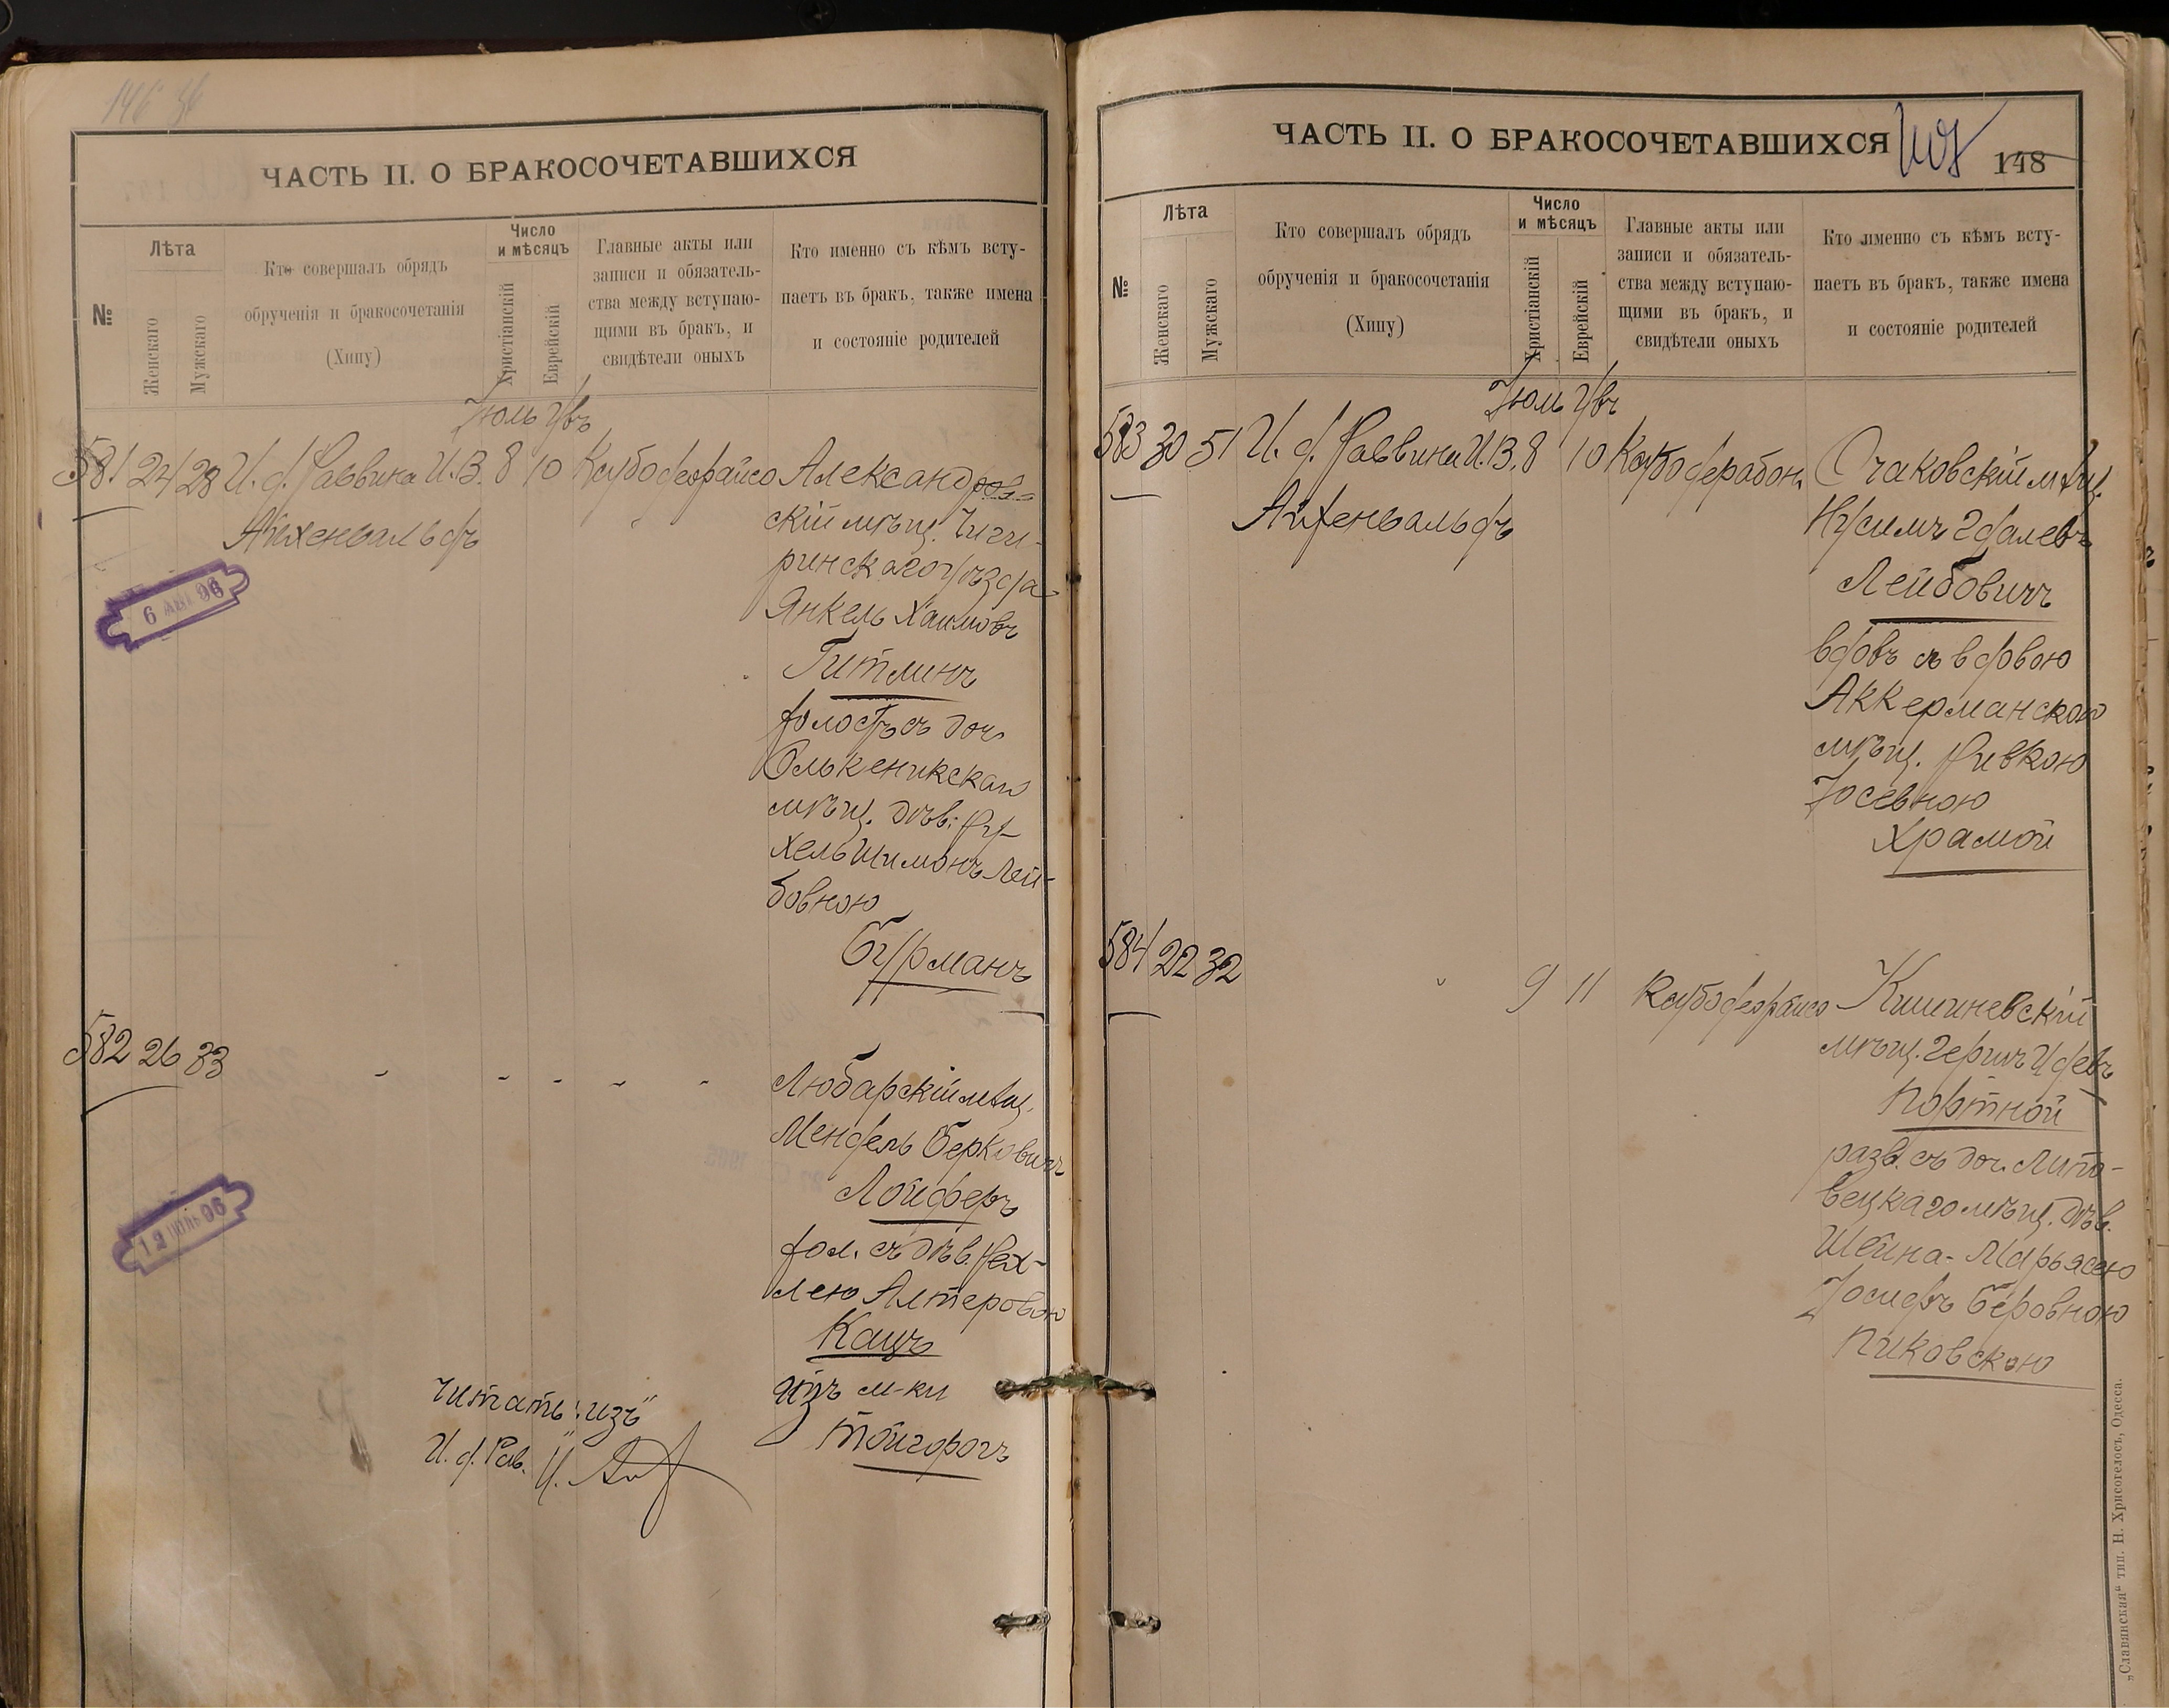 146
ЧАСТЬ II. О БРАКОСОЧЕТАВШИХСЯ
№
Лѣта
Женскаго
Мужскаго
Кто совершалъ обрядъ
обрученія и бракосочетанія
(Хипу)
Число
и мѣсяцъ
Христіанскій
Еврейскій
Главные акты или
записи и обязатель-
ства между вступаю-
щими въ бракъ, и
свидѣтели оныхъ
Кто именно съ кѣмъ всту-
паетъ въ бракъ, также имена
и состояніе родителей
Іюль
581 24 28 И. д. Раввина И.В. 8 10
Айхенвальдъ
Александров-
скій мѣщ. Чиги-
ринскаго уѣзда
Янкель Хаимовъ
Гитлинъ
холостъ съ доч.
Олькеникскаго
мѣщ. дѣв. Ру-
хель Шимонъ Лей-
бовною
Бурманъ
6 96
582 26 33 - - - - -
Любарскій мѣщ.
Мендель Берковичъ
Лойферъ
хол. съ дѣв. Рех-
лею Алтеровою
Кацъ
изъ м-ки
12 ІЮЛЬ 96
Читать: „изъ"
И. д. Рав.
ЧАСТЬ II. О БРАКОСОЧЕТАВШИХСЯ
148
№
Лѣта
Женскаго
Мужскаго
Кто совершалъ обрядъ
обрученія и бракосочетанія
(Хипу)
Число
и мѣсяцъ
Христіанскій
Еврейскій
Главные акты или
записи и обязатель-
ства между вступаю-
щими въ бракъ, и
свидѣтели оныхъ
Кто именно съ кѣмъ всту-
паетъ въ бракъ, также имена
и состояніе родителей
Іюль
583 30 51 И. д. Раввина И.В. 8 10
Айхенвальдъ
Очаковскій мѣщ.
Нусимъ Гдалевъ
Лейбовичъ
вдовъ съ вдовою
Аккерманскою
мѣщ. Ривкою
Іосевною
Храмой
584 22 32 " 9 11
Кишиневскій
мѣщ. Гершъ Идевъ
Портной
разв. съ доч. Липо-
вецкаго мѣщ. дѣв.
Шейна-Марьясею
Іосифъ Беровною
Пиковскою
„Славянская" тип. Н. Хрисогелосъ, Одесса.